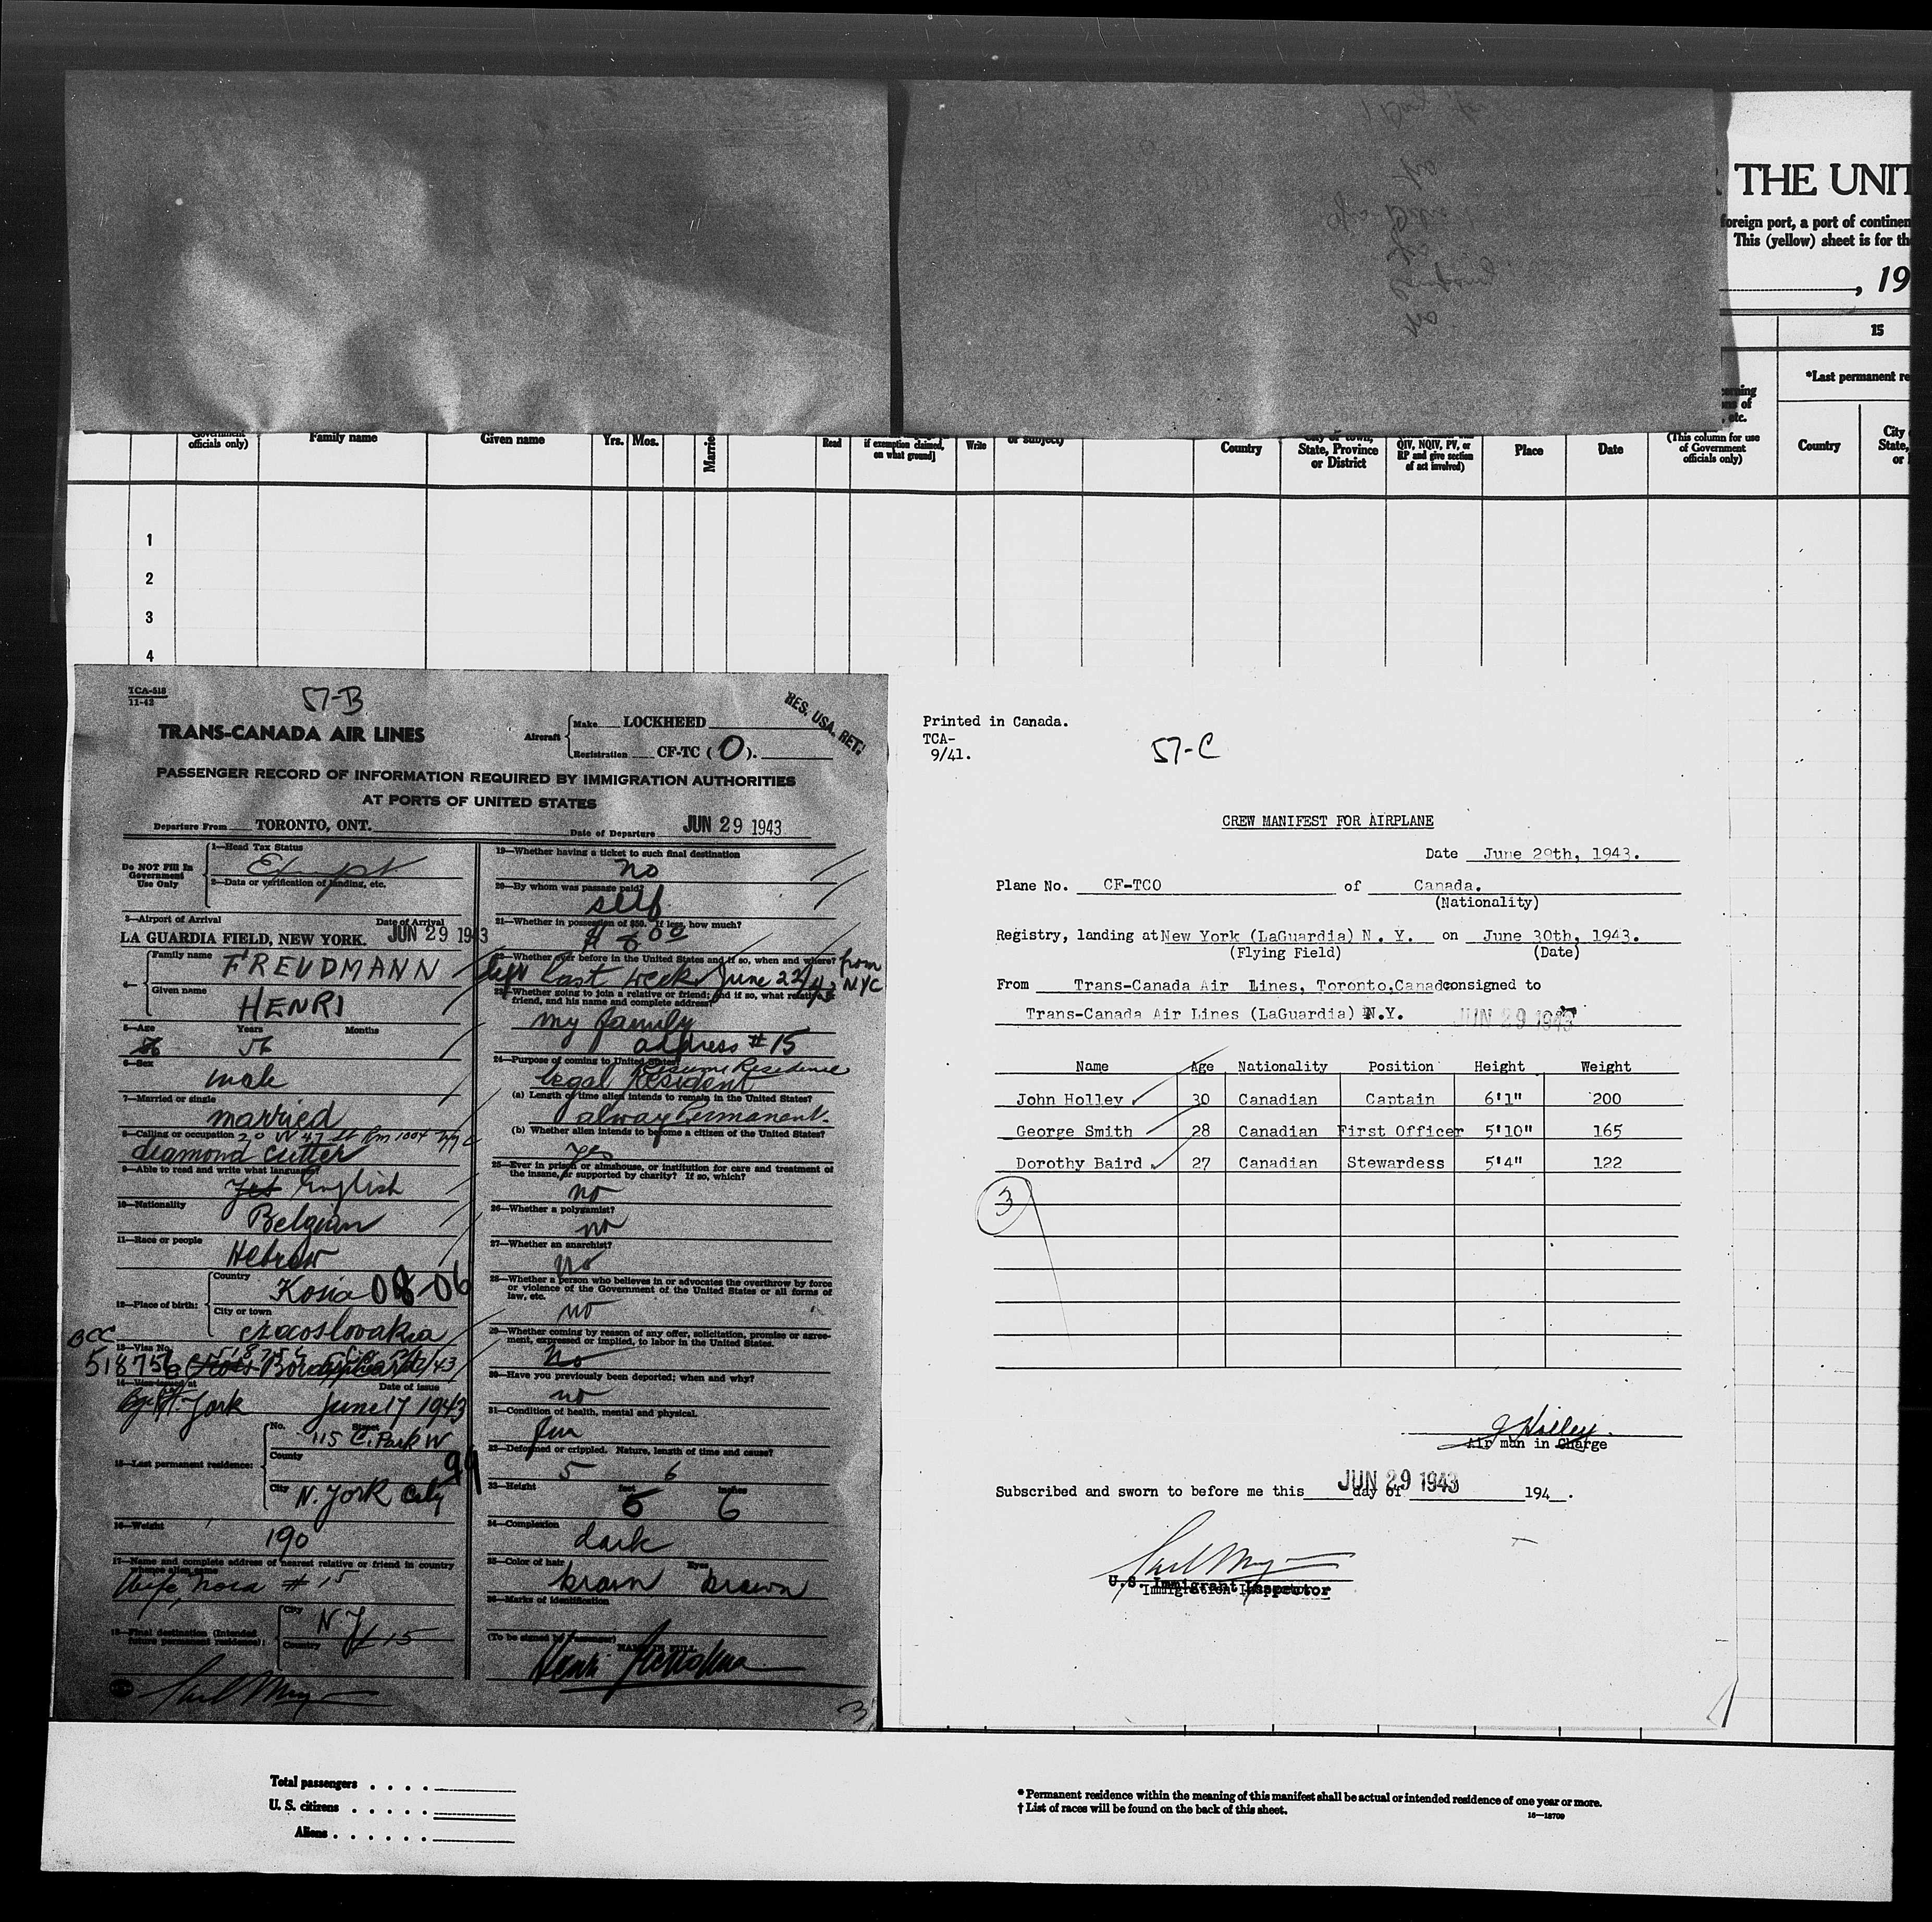 THE UNIT
foreign port, a port of continen
This (yellow) sheet is for th
, 19
15
*Last permanent re
officials only)
Family name
Given name
Yrs. Mos.
Married
Read
if exemption claimed,
on what ground]
Write
or subject)
Country
City or town,
State, Province
or District
QIV, NQIV, PV, or
RP and give section
of act involved)
Place
Date
(This column for use
of Government
officials only)
Country
City
State,
or
1
2
3
4
TCA-518
11-42
57-B
RES. USA. RET.
TRANS-CANADA AIR LINES
Aircraft
Make LOCKHEED
Registration CF-TC ( O ).
PASSENGER RECORD OF INFORMATION REQUIRED BY IMMIGRATION AUTHORITIES
AT PORTS OF UNITED STATES
Departure From TORONTO, ONT.
Date of Departure JUN 29 1943
Do NOT Fill In
Government
Use Only
1—Head Tax Status
2—Data or verification of landing, etc.
3—Airport of Arrival
Date of Arrival
LA GUARDIA FIELD, NEW YORK. JUN 29 1943
Family name
FREUDMANN
Given name
HENRI
5—Age Years Months
56
6—Sex
male
7—Married or single
married
8—Calling or occupation 20 W 47 St Rm 1004 NYC
diamond cutter
9—Able to read and write what language?
yes English
10—Nationality
Belgian
11—Race or people
Hebrew
12—Place of birth:
Country
Kosia 08-06
City or town
czacoslovakia
13—Visa No.
518756
Date of issue
June 17 1943
15—Last permanent residence:
No. Street
115 C. Park W
County
99
City
N. York City
16—Weight
190
17—Name and complete address of nearest relative or friend in country
whence alien came
Wife, Nora # 15
18—Final destination (Intended
future permanent residence):
City
N.Y.
Country
# 15
19—Whether having a ticket to such final destination
no
20—By whom was passage paid?
self
21—Whether in possession of $50. If less, how much?
22—Whether ever before in the United States and if so, when and where?
last week June 22/43 from NYC
23—Whether going to join a relative or friend; and if so, what relative or
friend, and his name and complete address?
my family
address # 15
24—Purpose of coming to United States?
Resume Residence
legal Resident
(a) Length of time alien intends to remain in the United States?
alway Permanent.
(b) Whether alien intends to become a citizen of the United States?
yes
25—Ever in prison or almshouse, or institution for care and treatment of
the insane, or supported by charity? If so, which?
no
26—Whether a polygamist?
no
27—Whether an anarchist?
No
28—Whether a person who believes in or advocates the overthrow by force
or violence of the Government of the United States or all forms of
law, etc.
no
29—Whether coming by reason of any offer, solicitation, promise or agree-
ment, expressed or implied, to labor in the United States.
No
30—Have you previously been deported; when and why?
no
31—Condition of health, mental and physical.
32—Deformed or crippled. Nature, length of time and cause?
5 6
33—Height feet inches
5 6
34—Complexion
dark
35—Color of hair Eyes
brown brown
36—Marks of identification
(To be signed by Passenger)
NAME IN FULL
Henri
3
Printed in Canada.
TCA-
9/41.
57-C
CREW MANIFEST FOR AIRPLANE
Date June 29th, 1943.
Plane No. CF-TCO of Canada.
(Nationality)
Registry, landing at New York (LaGuardia) N. Y. on June 30th, 1943.
(Flying Field) (Date)
From Trans-Canada Air Lines, Toronto, Canada consigned to
Trans-Canada Air Lines (LaGuardia) N.Y. JUN 29 1943
Name Age Nationality Position Height Weight
John Holley 30 Canadian Captain 6'1" 200
George Smith 28 Canadian First Officer 5'10" 165
Dorothy Baird 27 Canadian Stewardess 5'4" 122
3
J Holley
Air man in Charge
Subscribed and sworn to before me this day of 194 .
JUN 29 1943
U.S. Immigrant Inspector
Immigration Inspector
Total passengers . . . .
U. S. citizens . . . . .
Aliens . . . . . .
* Permanent residence within the meaning of this manifest shall be actual or intended residence of one year or more.
† List of races will be found on the back of this sheet.
16—18709